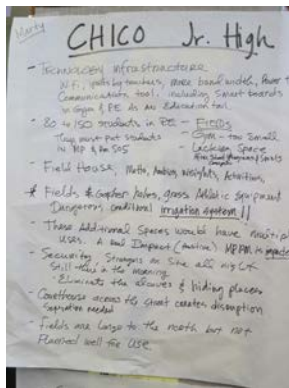 Marty
CHICO Jr. High
- Technology Infrastructure
Wifi, used by teachers, more band width, Power
Communication tool, including Smart boards
in Gym & PE As an Education tool
- 80 to 150 students in PE - Fields
They must put students Gym - too Small
in MP & Rm 505 Lacking Space
After School Programs & Sports
- Field House, Maths, Weights, Activities,
* Fields & Gopher holes, grass Athletic equipment
Dangerous conditions irrigation system !!
- These Additional Spaces would have multiple
uses. A Impact (massive) MP RM is
- Security, Strangers on Site all night
Still there in the morning
- Eliminate the alcoves & hiding places
- Courthouse across the street creates disruption
Separation needed
- Fields are large to the north but not
Planned well for use